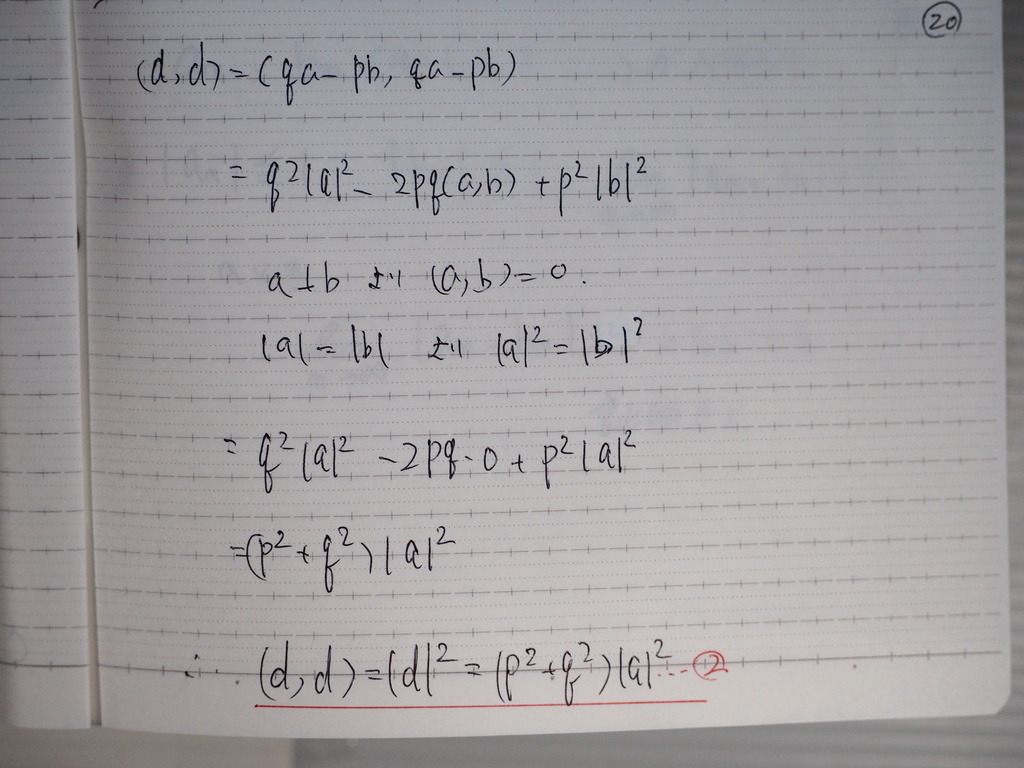 ⑳
(d,d)=(qa-pb, qa-pb)
= q²|a|² - 2pq(a,b) + p²|b|²
a⊥b より (a,b)=0.
|a|=|b| より |a|²=|b|²
= q²|a|² -2pq・0 + p²|a|²
=(p²+q²)|a|²
∴ (d,d)=|d|²=(p²+q²)|a|²…②